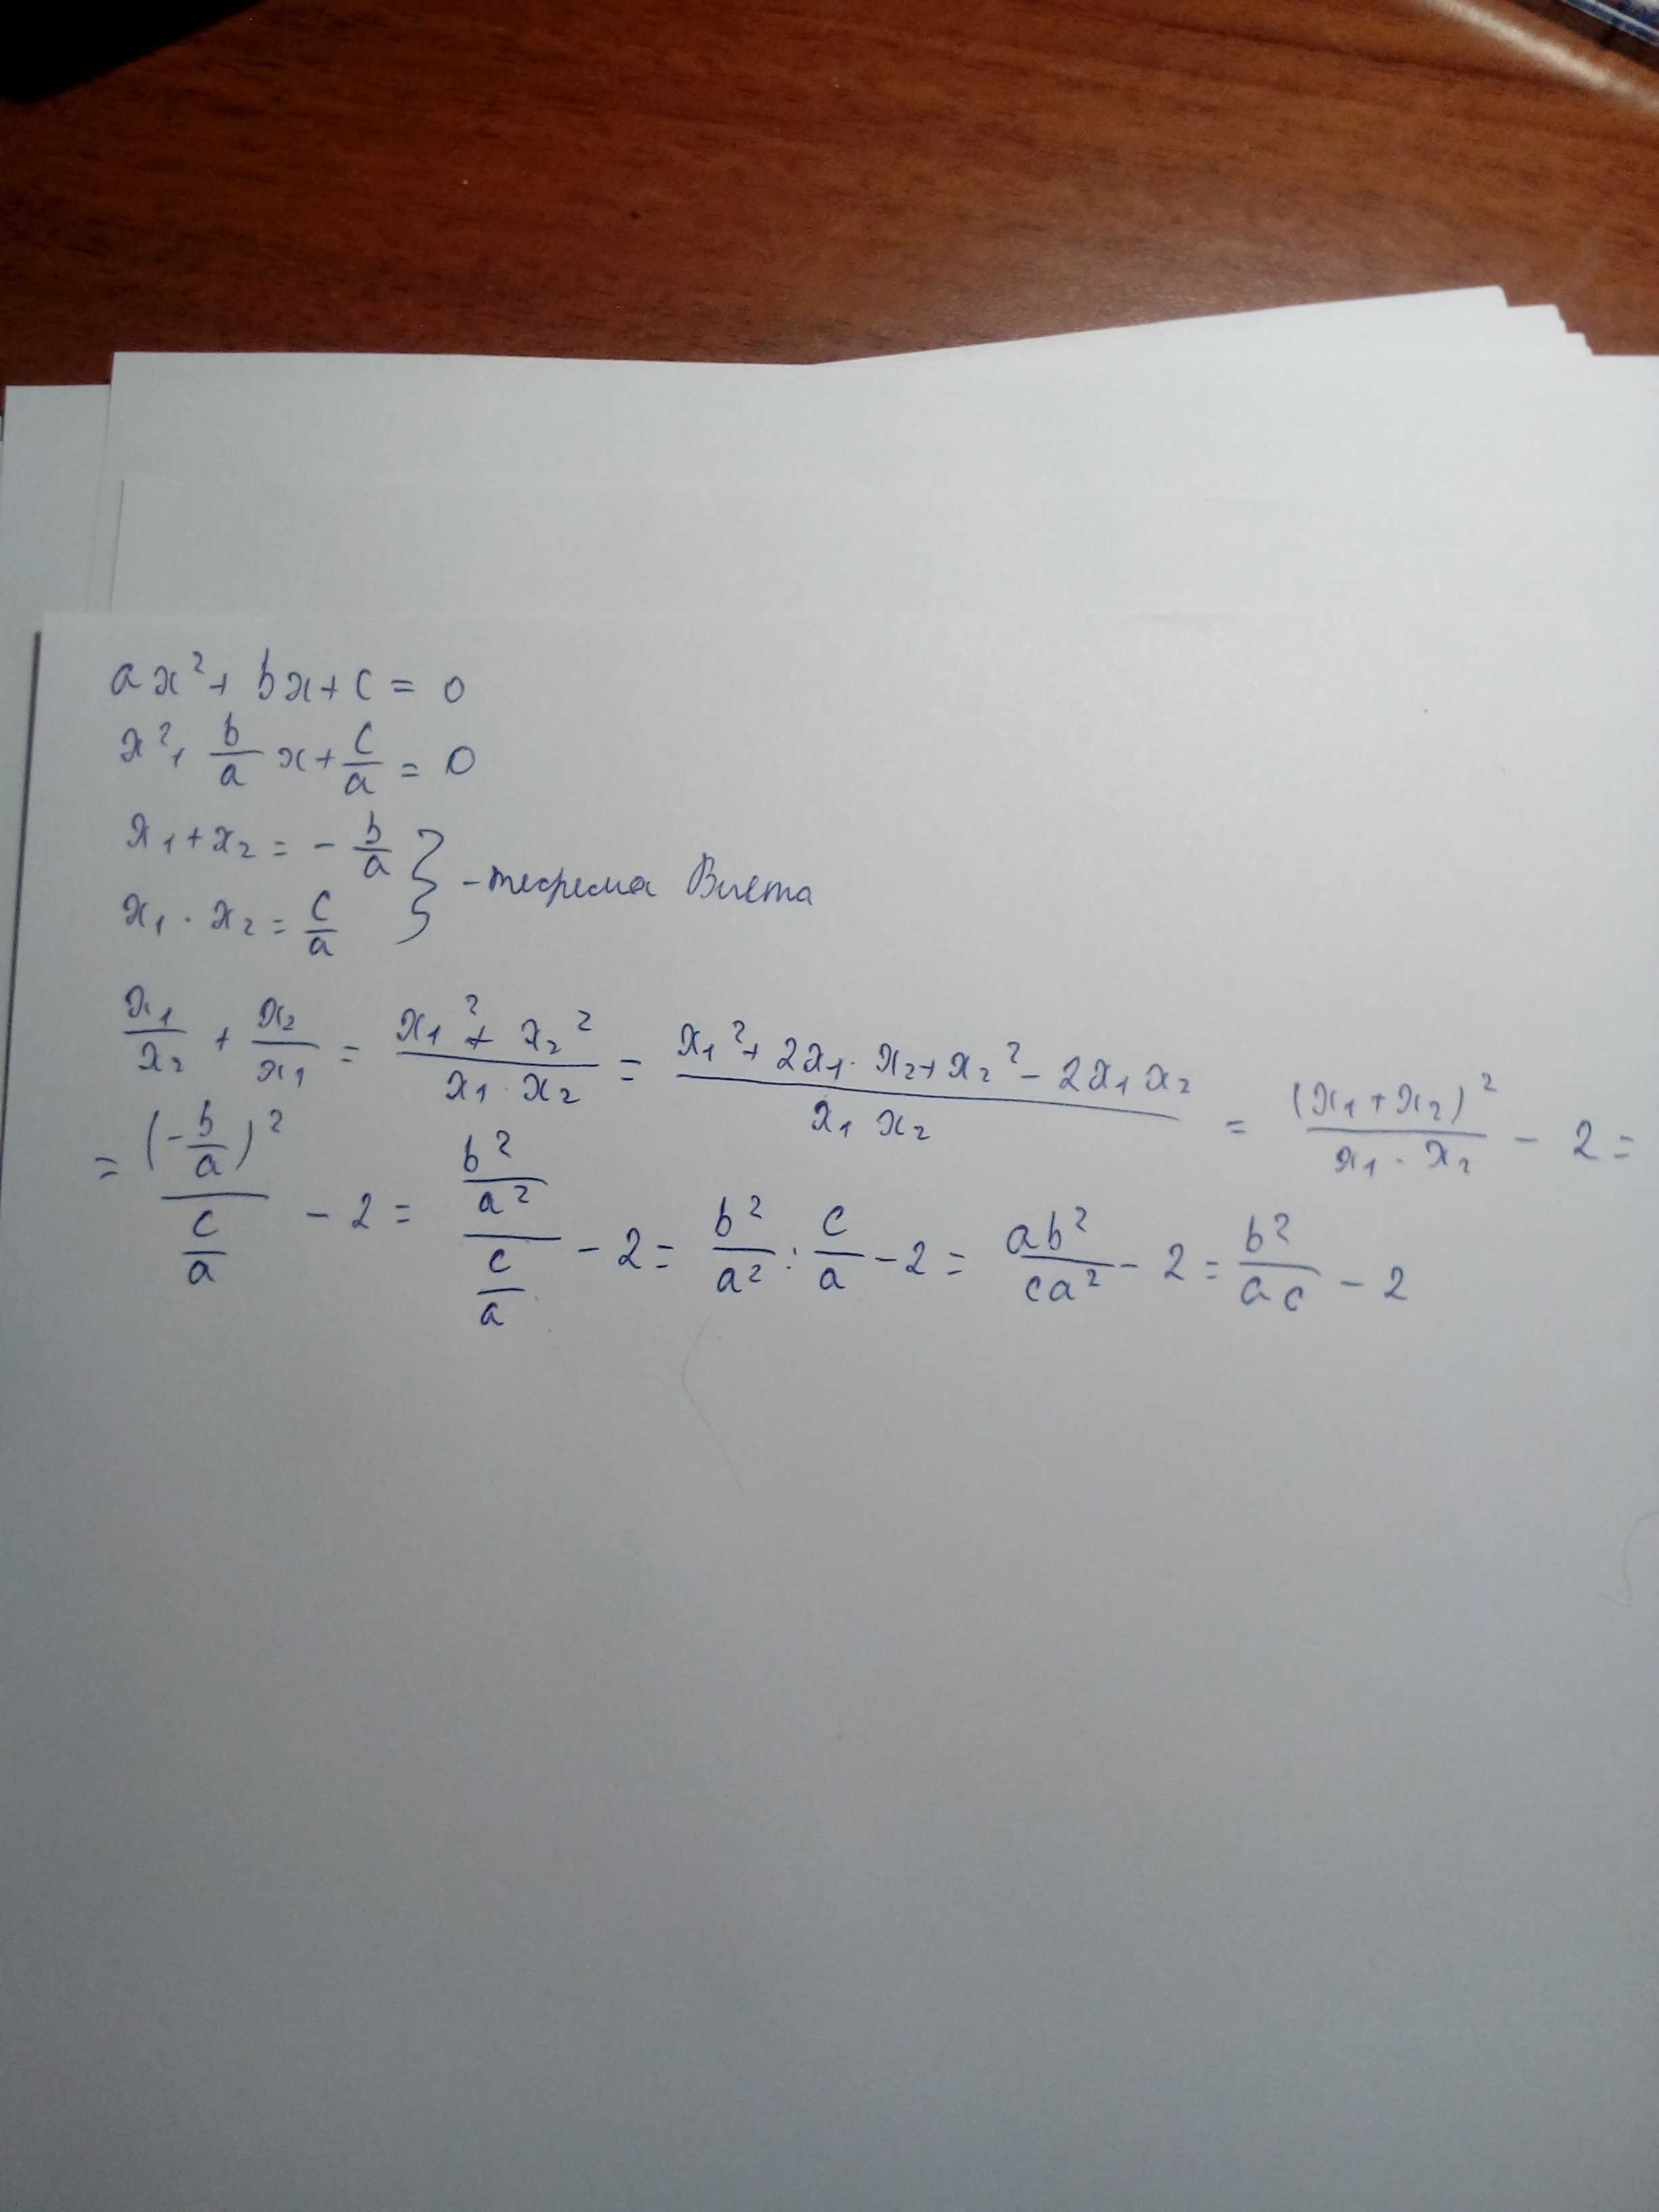 ax² + bx + c = 0
x² + b/a x + c/a = 0
x₁ + x₂ = - b/a
x₁ · x₂ = c/a } - теорема Виета
x₁/x₂ + x₂/x₁ = (x₁² + x₂²)/(x₁ · x₂) = (x₁² + 2x₁ · x₂ + x₂² - 2x₁x₂)/(x₁ x₂) = (x₁ + x₂)²/(x₁ · x₂) - 2 =
= (-b/a)²/(c/a) - 2 = (b²/a²)/(c/a) - 2 = b²/a² : c/a - 2 = ab²/ca² - 2 = b²/ac - 2